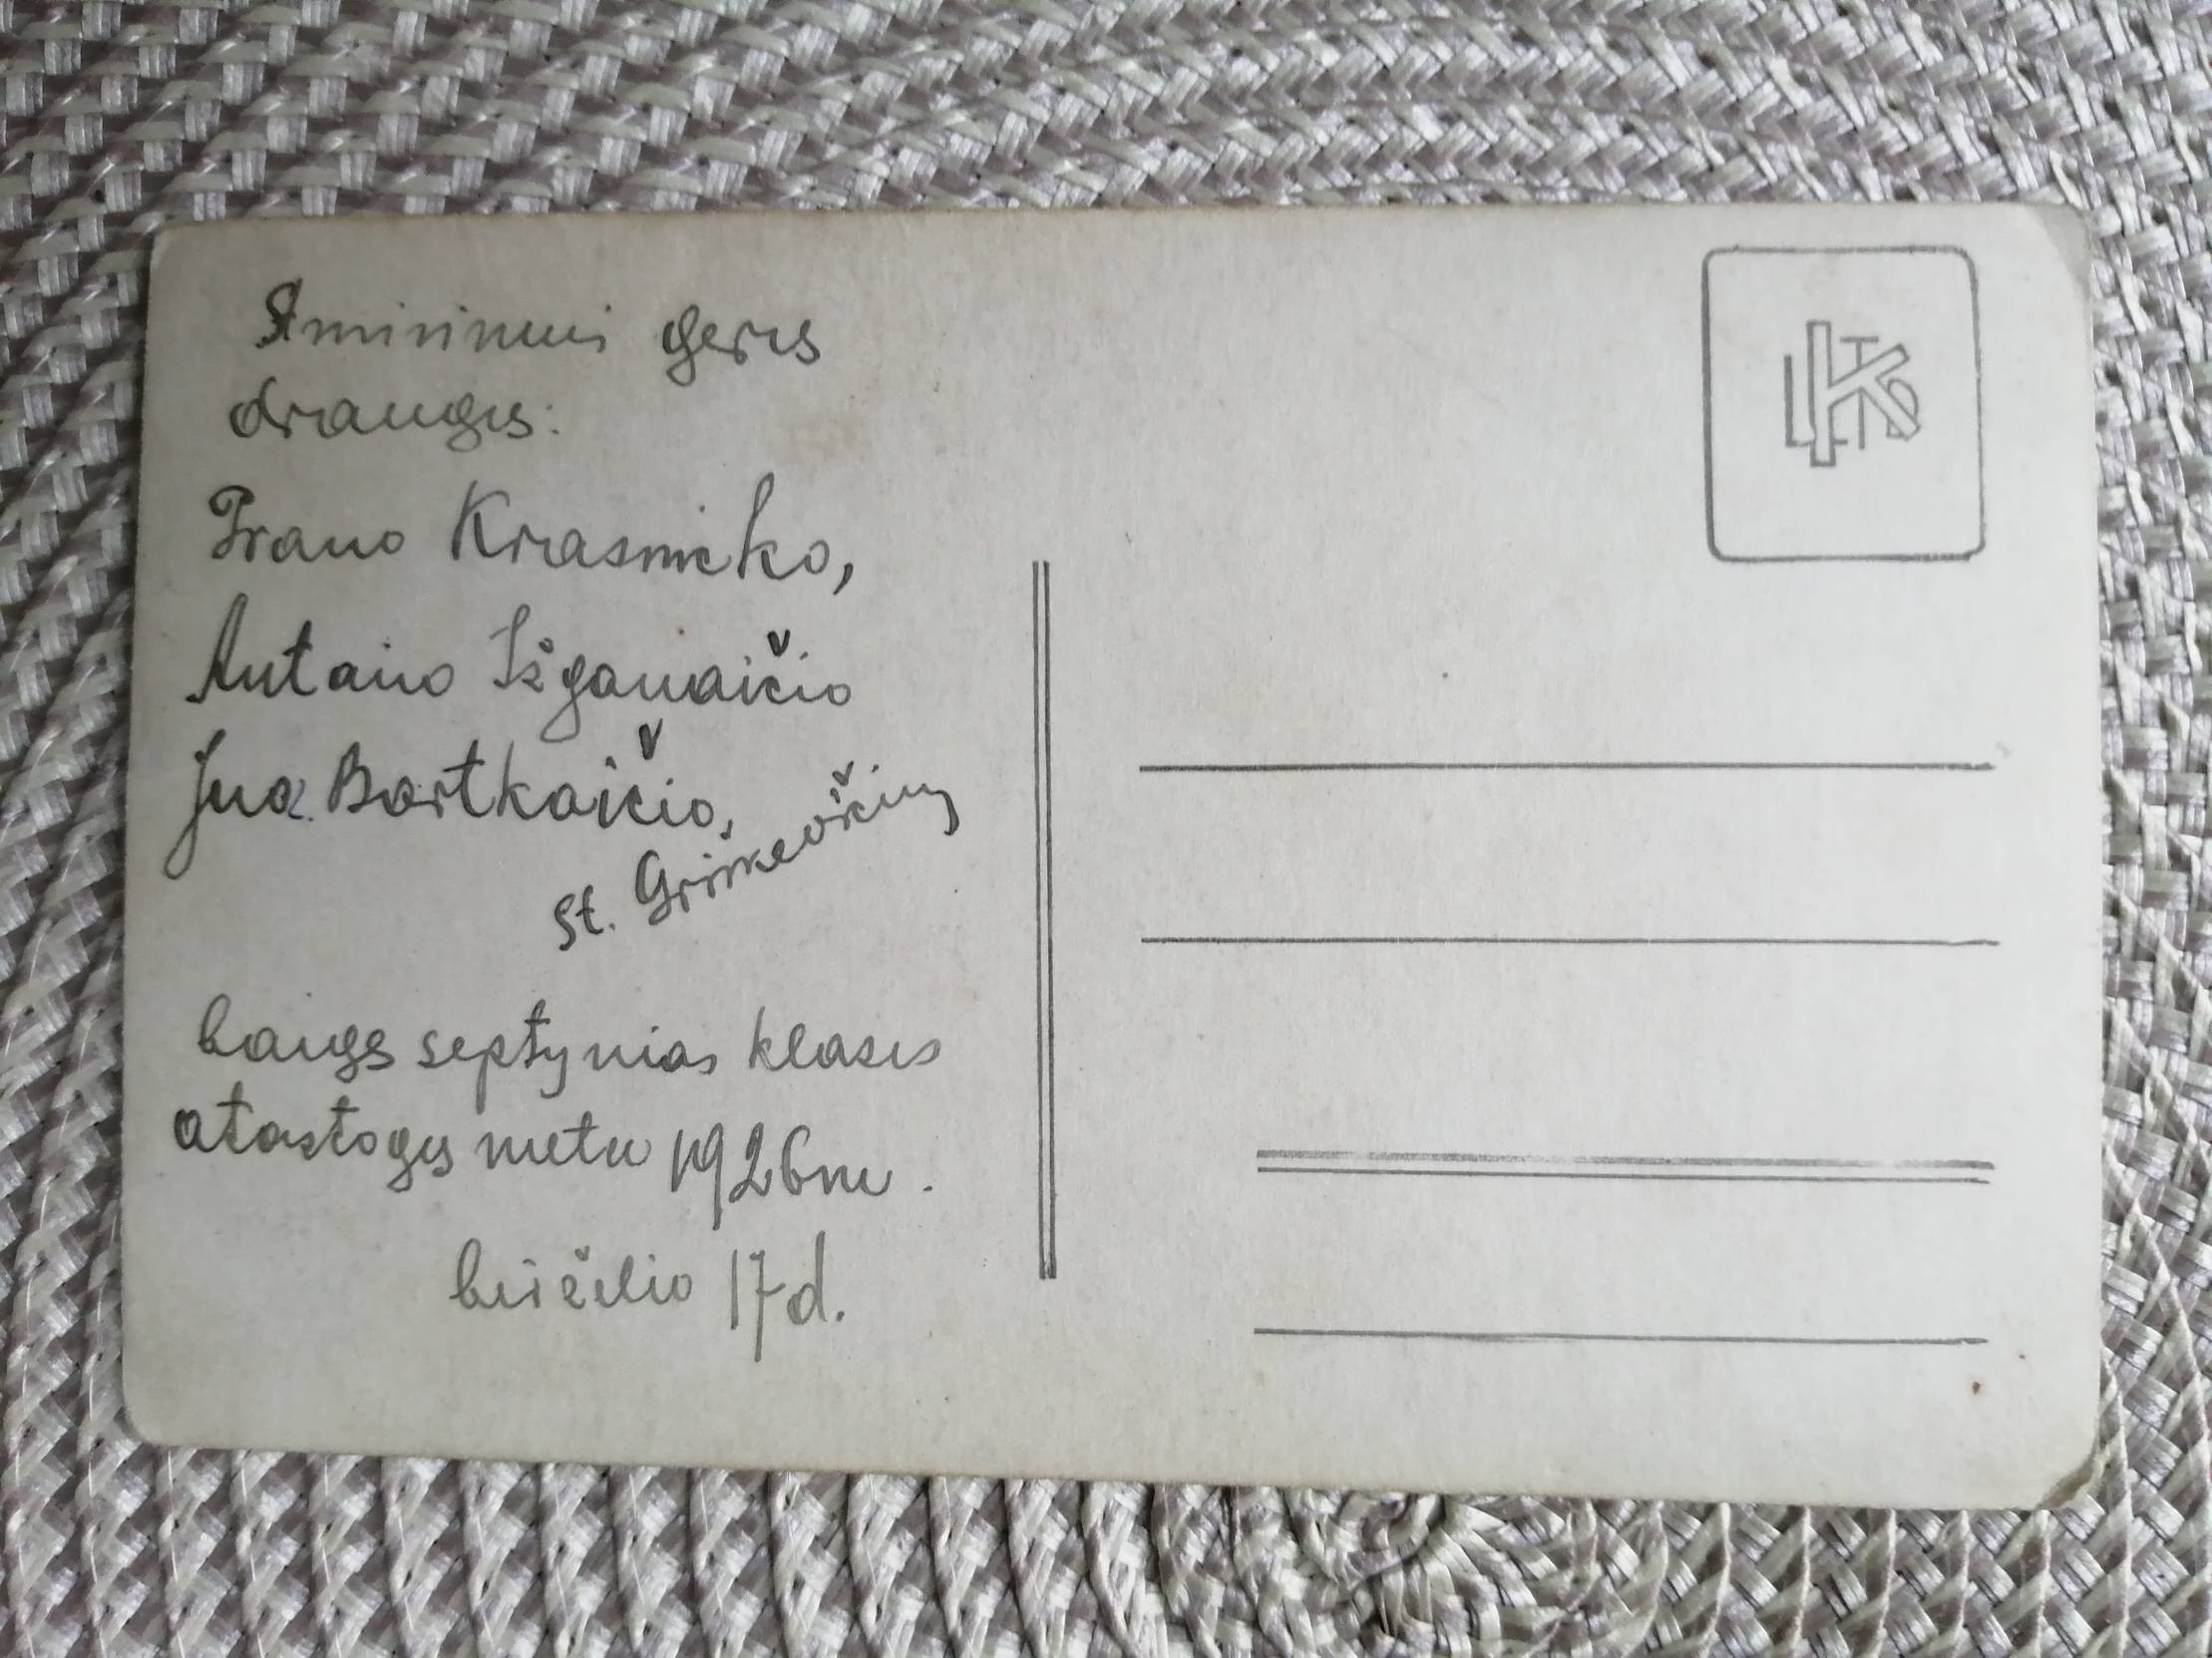 Atminimui gerų
draugų:
Prano Krasnicko,
Antano Išganaičio
Juoz. Bartkaičio,
St. Griškevičių
baigę septynias klases
atostogų metu 1926 m.
birželio 17 d.